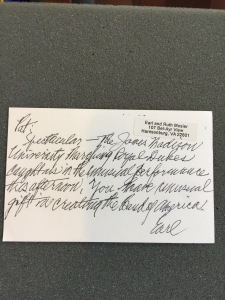 Earl and Ruth
Bel-Air View
Harrisonburg, VA 22801
Pat:
Spectacular - The James Madison
University Marching Royal Dukes
in the musical performance
this afternoon. You have unusual
gift in creating the Band of America!
Earl